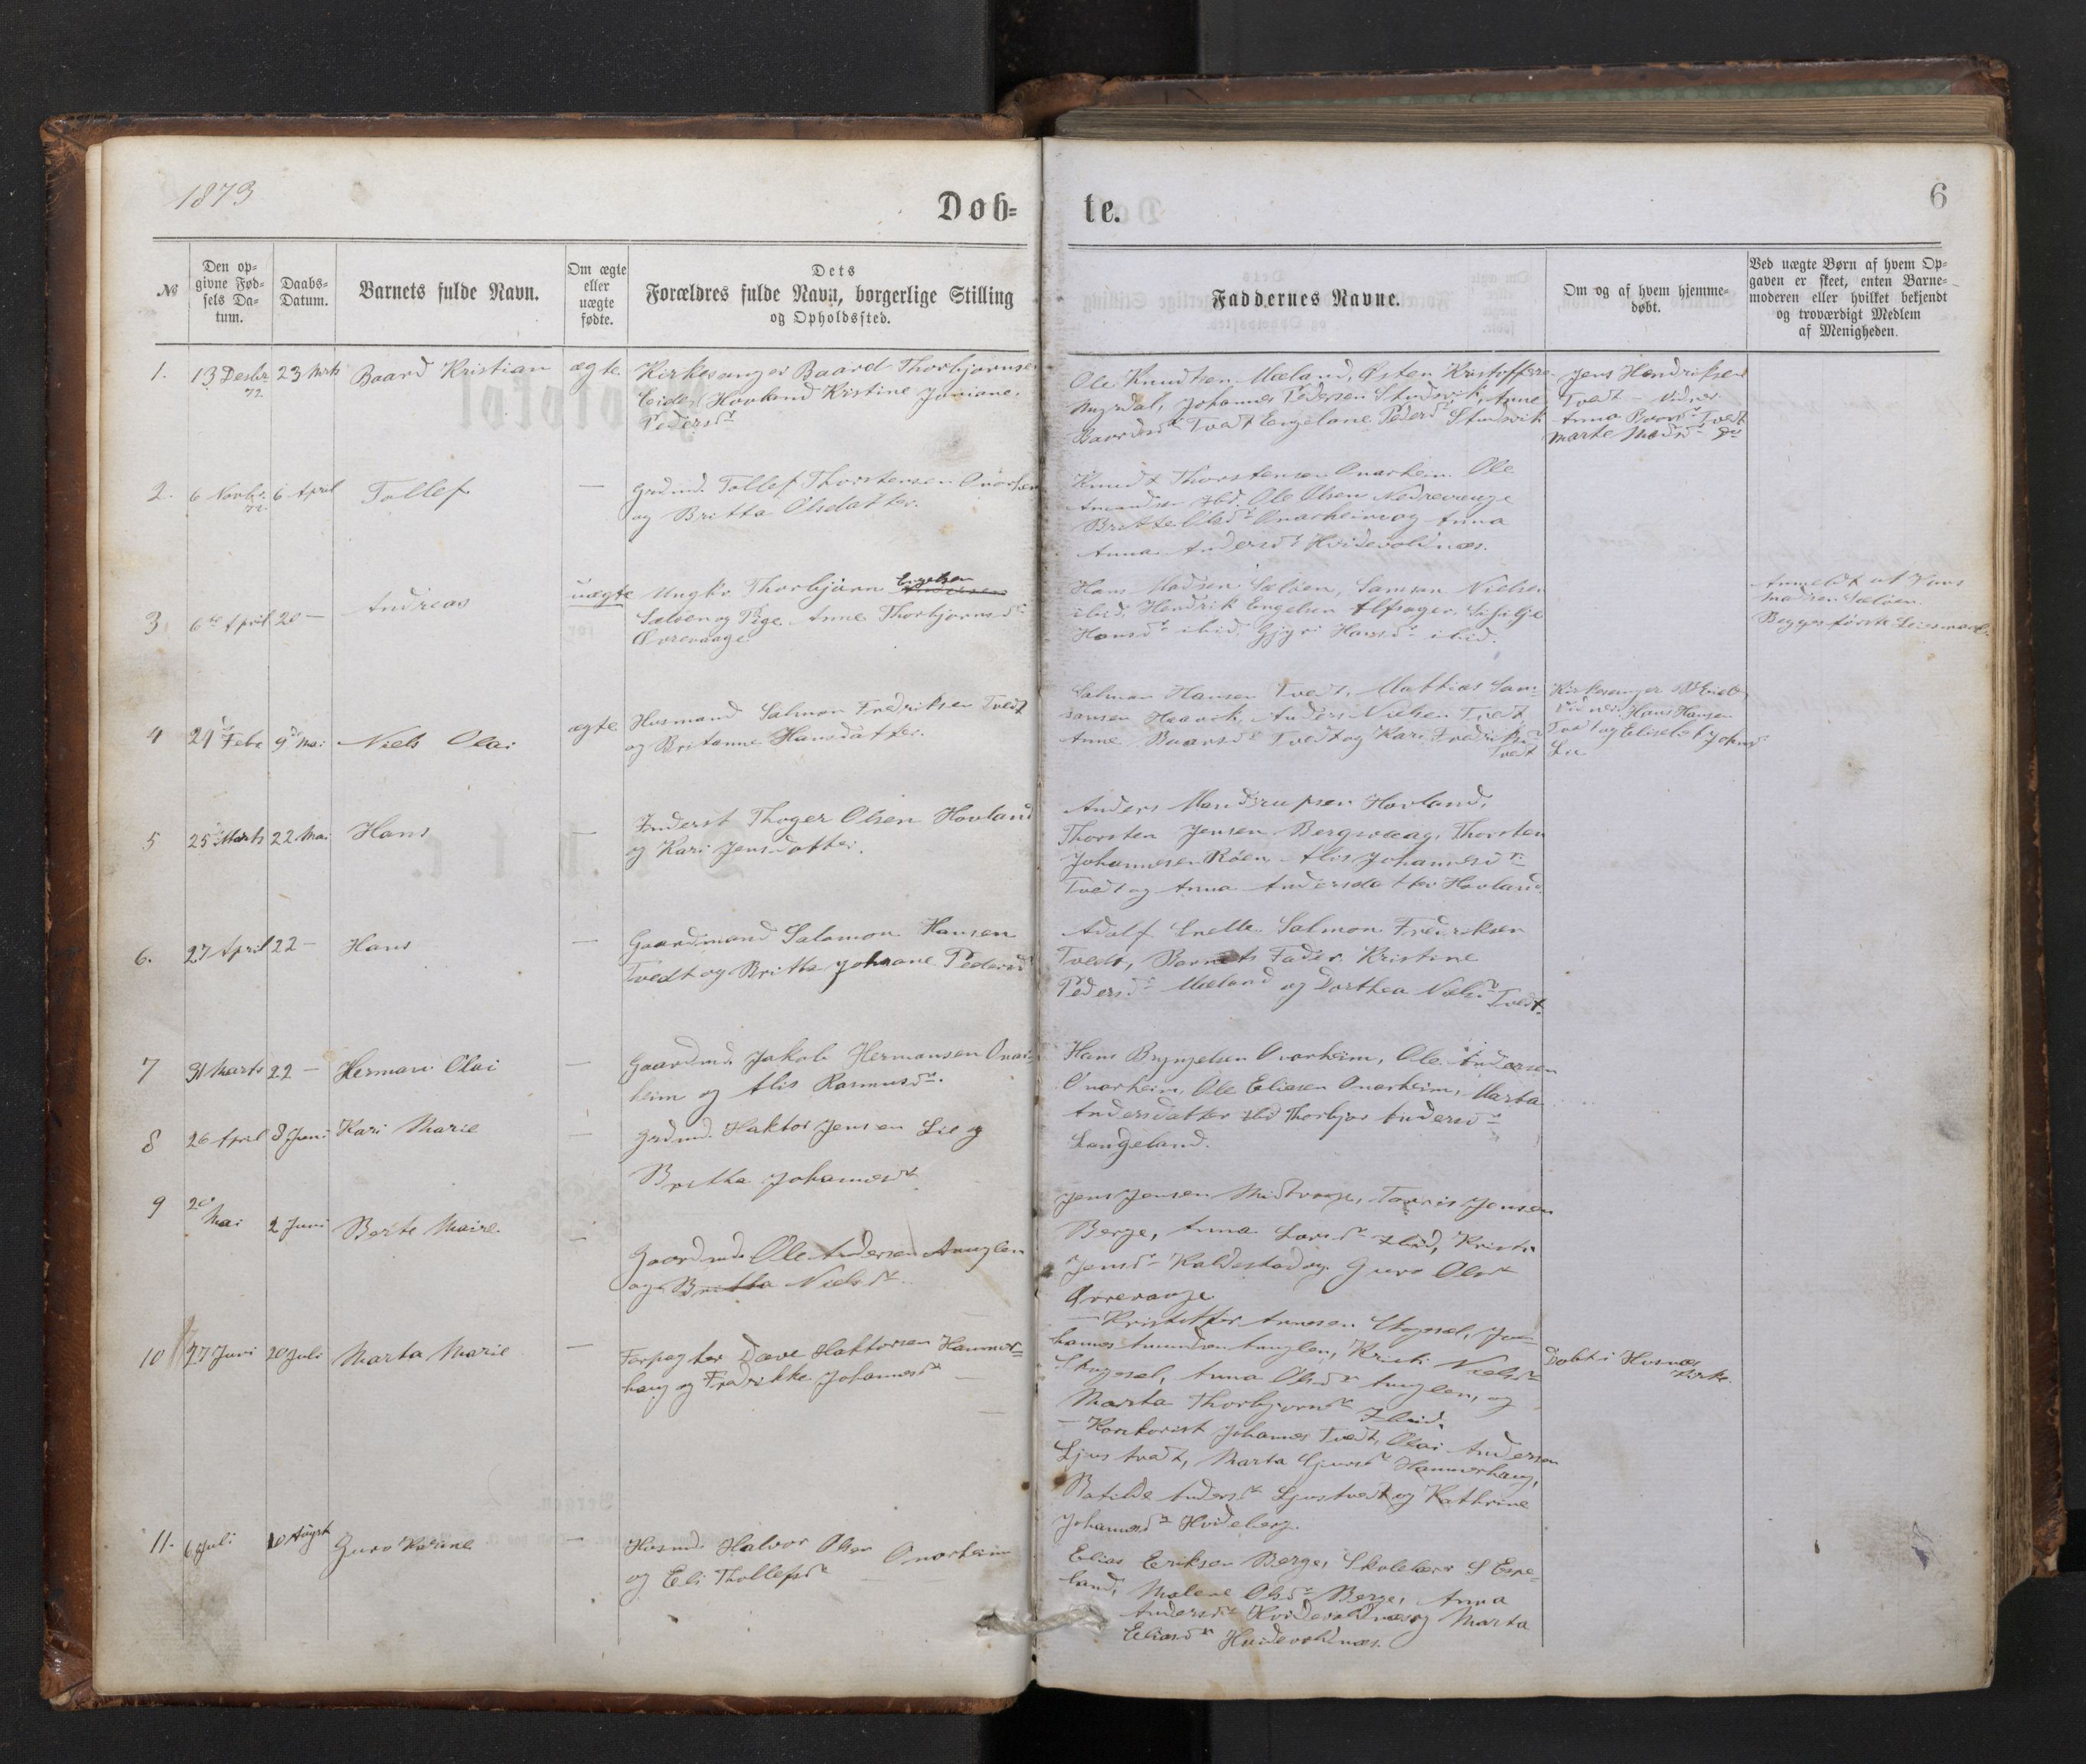 1873
Døb=
te.
6
№
Den op=
givne Fød=
sels Da=
tum.
Daabs=
Datum.
Barnets fulde Navn.
Om ægte
eller
uægte
fødte.
Dets
Forældres fulde Navn, borgerlige Stilling
og Opholdssted.
Faddernes Navne.
Om og af hvem hjemme=
døbt.
Ved uægte Børn af hvem Op=
gaven er skeet, enten Barne=
moderen eller hvilket bekjendt
og troværdigt Medlem
af Menigheden.
1. 13 Desbr 72 23 Mrts Baard Kristian ægte Kirkesanger Baard Thorbjørnsen
Eide, Hovland Kristine Joniane
Pedersdr
Ole Knudsen Mæland, Østen Kristoffers
Myrdal, Johannes Pedersen Studsvik, Anne
Baardsdr Tvedt Engelane Pedersdr Studsvik
Jens Hendriksen
Tvedt – Vidner
Anna Baardsdr Tvedt
Marte Madsdr
2. 6 Novbr. 72. 6 April Tollef — Grdmd. Tollef Thorstensen Onarheim
og Britta Olsdatter.
Knud Thorstensen Onarheim Ole
Amundsen Ibid. Ole Olsen Nedrevaage
Britte Olsdr Onarheim og Anna
Anna Andersdr Hvidevoldnæs.
3 6te April 20 — Andreas uægte Ungkr Thorbjørn Engelsen
Sæløen og Pige Anne Thorbjørnsdr
Øvrevaage
Hans Madsen Sæløen, Samson Nielsen
ibid. Hendrik Engelsen Alfsager. Sisilje
Hansdr ibid. Gjøri Hansdr ibid.
Anmeldt af Hans
Madsen Sæløen.
Begges første Leiermaal.
4 21 Febr 9 Mai Niels Olai ægte Husmand Salmon Fredriksen Tvedt
og Britanne Hansdatter.
Salmon Hansen Tvedt, Mathias Sam=
sonsen Haavik, Anders Nielsen Tvedt
Anne Baarsdr Tvedt og Kari Fredriksdr
Tvedt
Kirkesanger
Vidner. Hans Hansen
Tvedt og Eliselet Johnsdr
Lie
5 25 Marts 22 Mai Hans — Inderst Thoger Olsen Hovland
og Kari Jensdatter.
Anders Mandrupsen Hovland,
Thorsten Jensen Bergsvaag, Thorsten
Johannesen Røen Alis Johannesdr
Tvedt og Anna Andersdatter Hovland.
6. 27 April 22 — Hans — Gaardmand Salamon Hansen
Tvedt og Britha Johane Pedersdr
Adolf Snelle Salmon Fredriksen
Tvedt, Barnets Fader. Kristine
Pedersdr Mæland og Dorthea Nielsdr Tvedt.
7 31 Marts 22 — Herman Olai — Gaardmd. Jakob Hermansen Onar=
heim og Alis Rasmusdr.
Hans Brynjelsen Onarheim, Ole Andersen
Onarheim, Ole Eliasen Onarheim, Marta
Andersdatter Ibid Thorbjør Andersdr
Langeland.
8 26 April 8 Juni Kari Marie — Grdmd. Haktor Jensen Lie og
Britha Johannesdr
Jens Jensen Midtvaage, Torris Jensen
Berge, Anna Larsdr Ibid, Kristi
Jensdr Kaldestad og Guro Olsdr
Øvrevaage
9 2de Mai 2 Juni Berte Maire — Gaardmd. Ole Andersen Anuglen
og Britta Nielsdr.
— Kristoffer Arnesen Stegesæl, Jo=
hannes Amundsen Anuglen, Kristi Nielsdr
Stegesæl, Anna Olsdr Anuglen, og
Marta Thorbjørnsdr Ibid.
10 27 Juni 20 Juli Marta Marie — Forpagter Dave Haktorsen Hammer=
haug og Fredrikke Johannesdr
— Kontorist Johannes Tvedt, Olai Andersen
Ljostvedt, Marta Gjursdr Hammerhaug,
Batilde Andersdr Ljostvedt og Kathrine
Johannesdr Hvideberg.
Døbt i Husnæs
Kirke.
11. 6 Juli 10 August Guro Karine — Husmd. Halvor Olsen Onarheim
og Eli Thollefsdr
Elias Eriksen Berge, Skolelærer S Espe=
land, Malene Olsdr Berge, Anna
Andersdr Hvidevoldnæs og Marta
Eliasdr Hvidevoldnæs.